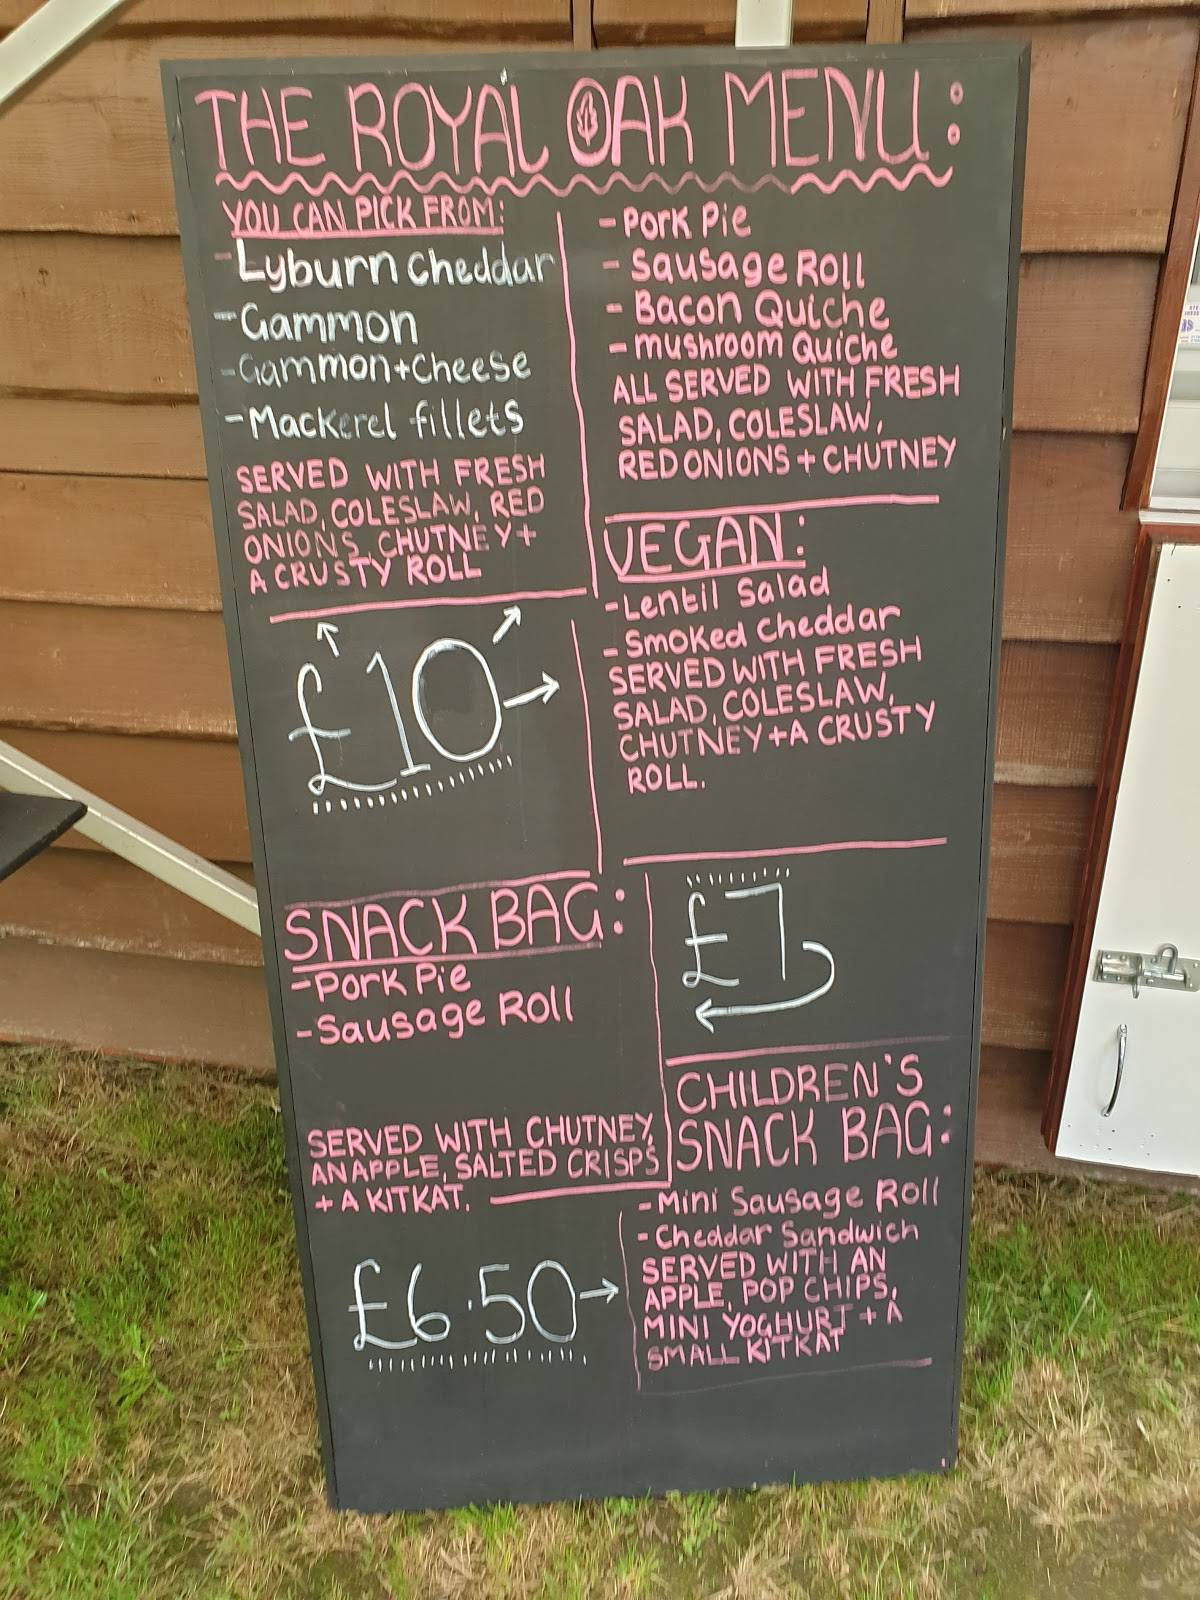 THE ROYAL OAK MENU:
YOU CAN PICK FROM:
- Lyburn Cheddar
- Gammon
- Gammon + Cheese
- Mackerel fillets
SERVED WITH FRESH
SALAD, COLESLAW, RED
ONIONS, CHUTNEY +
A CRUSTY ROLL
£10
- Pork Pie
- Sausage Roll
- Bacon Quiche
- mushroom Quiche
ALL SERVED WITH FRESH
SALAD, COLESLAW,
RED ONIONS + CHUTNEY
VEGAN:
- Lentil Salad
- Smoked Cheddar
SERVED WITH FRESH
SALAD, COLESLAW,
CHUTNEY + A CRUSTY
ROLL.
SNACK BAG:
- Pork Pie
- Sausage Roll
SERVED WITH CHUTNEY,
AN APPLE, SALTED CRISPS
+ A KITKAT.
£7
CHILDREN'S
SNACK BAG:
- Mini Sausage Roll
- Cheddar Sandwich
SERVED WITH AN
APPLE, POP CHIPS,
MINI YOGHURT + A
SMALL KITKAT
£6.50